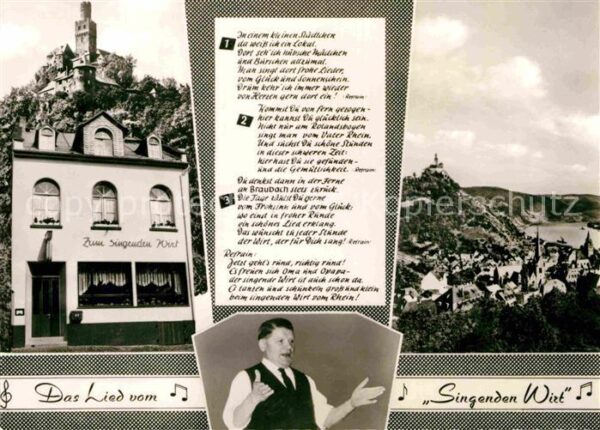 Zum singenden Wirt
1
In einem kleinen Städtchen
da weiß ich ein Lokal.
Dort seh' ich hübsche Mädchen
und Bürschen allzumal.
Man singt dort frohe Lieder,
vom Glück und Sonnenschein.
Drum kehr' ich immer wieder
von Herzen gern dort ein! - Refrain:
2
Kommst Du von fern gezogen-
hier kannst Du glücklich sein.
Nicht nur am Rolandsbogen
singt man vom Vater Rhein.
Und suchst Du schöne Stunden
in dieser schweren Zeit:
hier hast Du sie gefunden-
und die Gemütlichkeit. - Refrain:
Du denkst dann in der Ferne
an Braubach stets zurück.
Die Tage warst Du gerne
vom Frohsinn und vom Glück;
wo einst in froher Runde
ein schönes Lied erklang.
Das wünscht zu jeder Stunde
der Wirt, der für Dich sang! Refrain:
Refrain:
Jetzt geht's rund, richtig rund!
Es freuen sich Oma und Opapa-
der singende Wirt ist auch schon da.
Es tanzen und schunkeln groß und klein
beim singenden Wirt vom Rhein!
Das Lied vom
„Singenden Wirt"